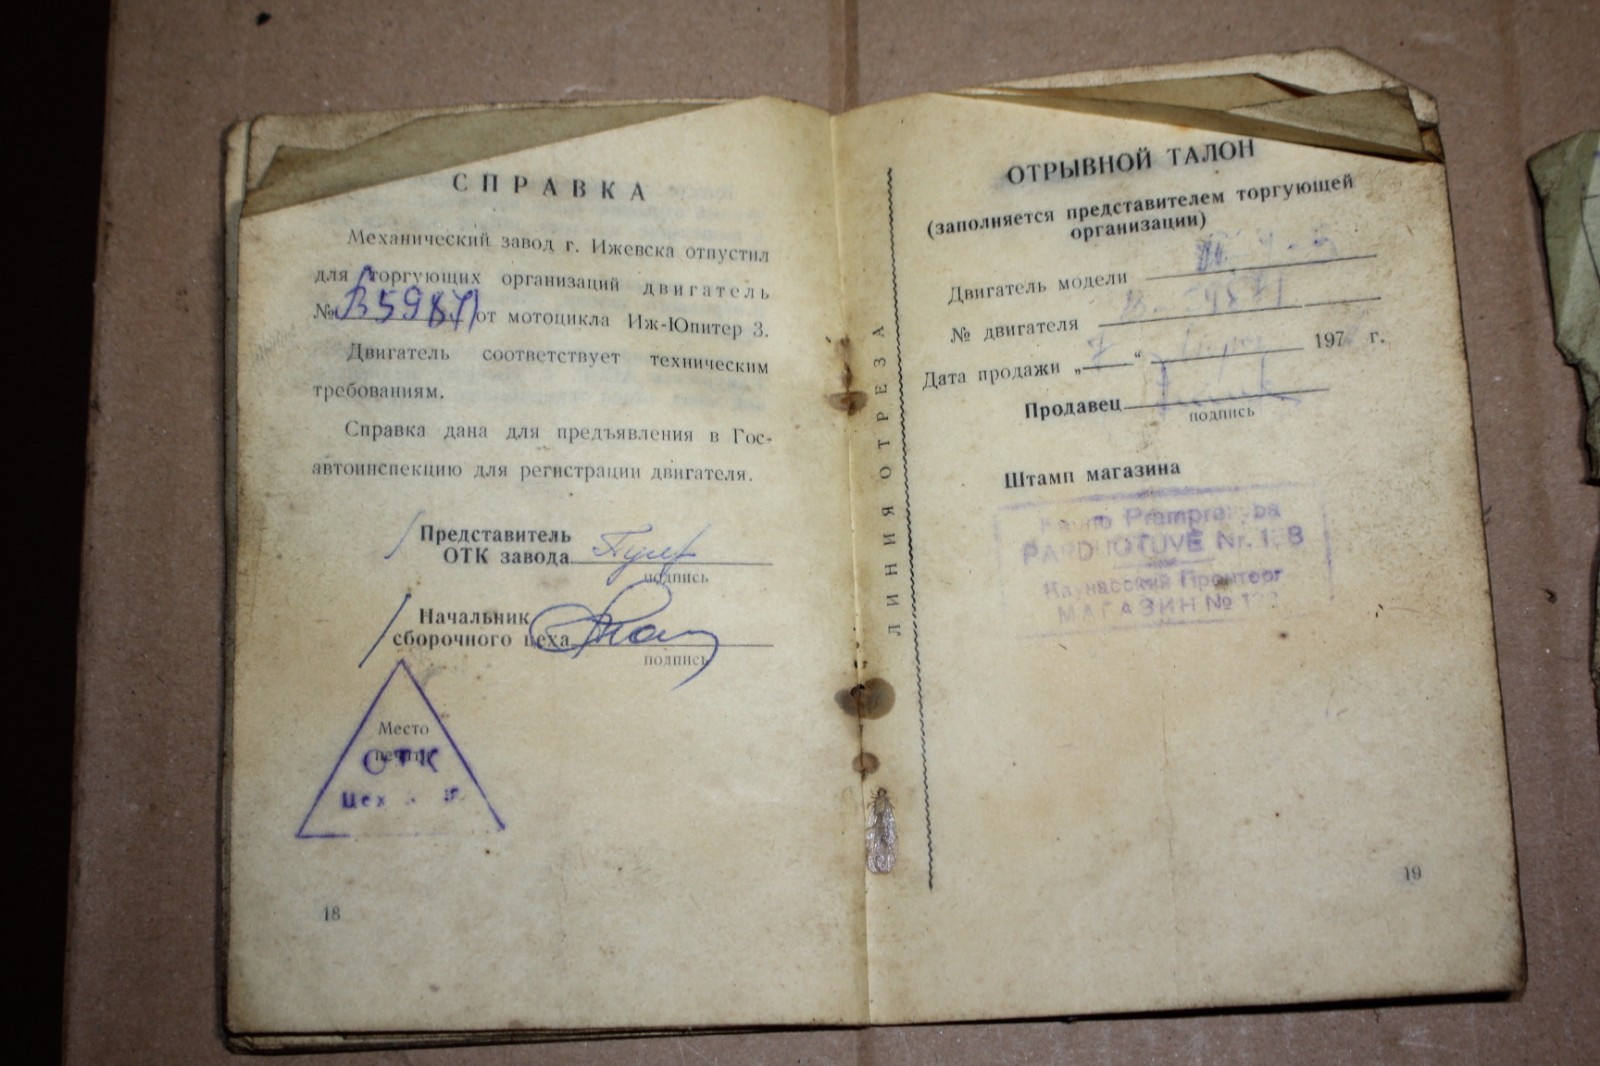 СПРАВКА
Механический завод г. Ижевска отпустил
для торгующих организаций двигатель
№ В59871 от мотоцикла Иж-Юпитер 3.
Двигатель соответствует техническим
требованиям.
Справка дана для предъявления в Гос-
автоинспекцию для регистрации двигателя.
Представитель
ОТК завода
подпись
Начальник
сборочного цеха
подпись
Место
печати
ОТК
Цех
18
ЛИНИЯ ОТРЕЗА
ОТРЫВНОЙ ТАЛОН
(заполняется представителем торгующей
организации)
Двигатель модели
№ двигателя
Дата продажи „7“ 197 г.
Продавец
подпись
Штамп магазина
Kauno Pramprekyba
PARDUOTUVĖ Nr.
Каунасский Промторг
МАГАЗИН №
19